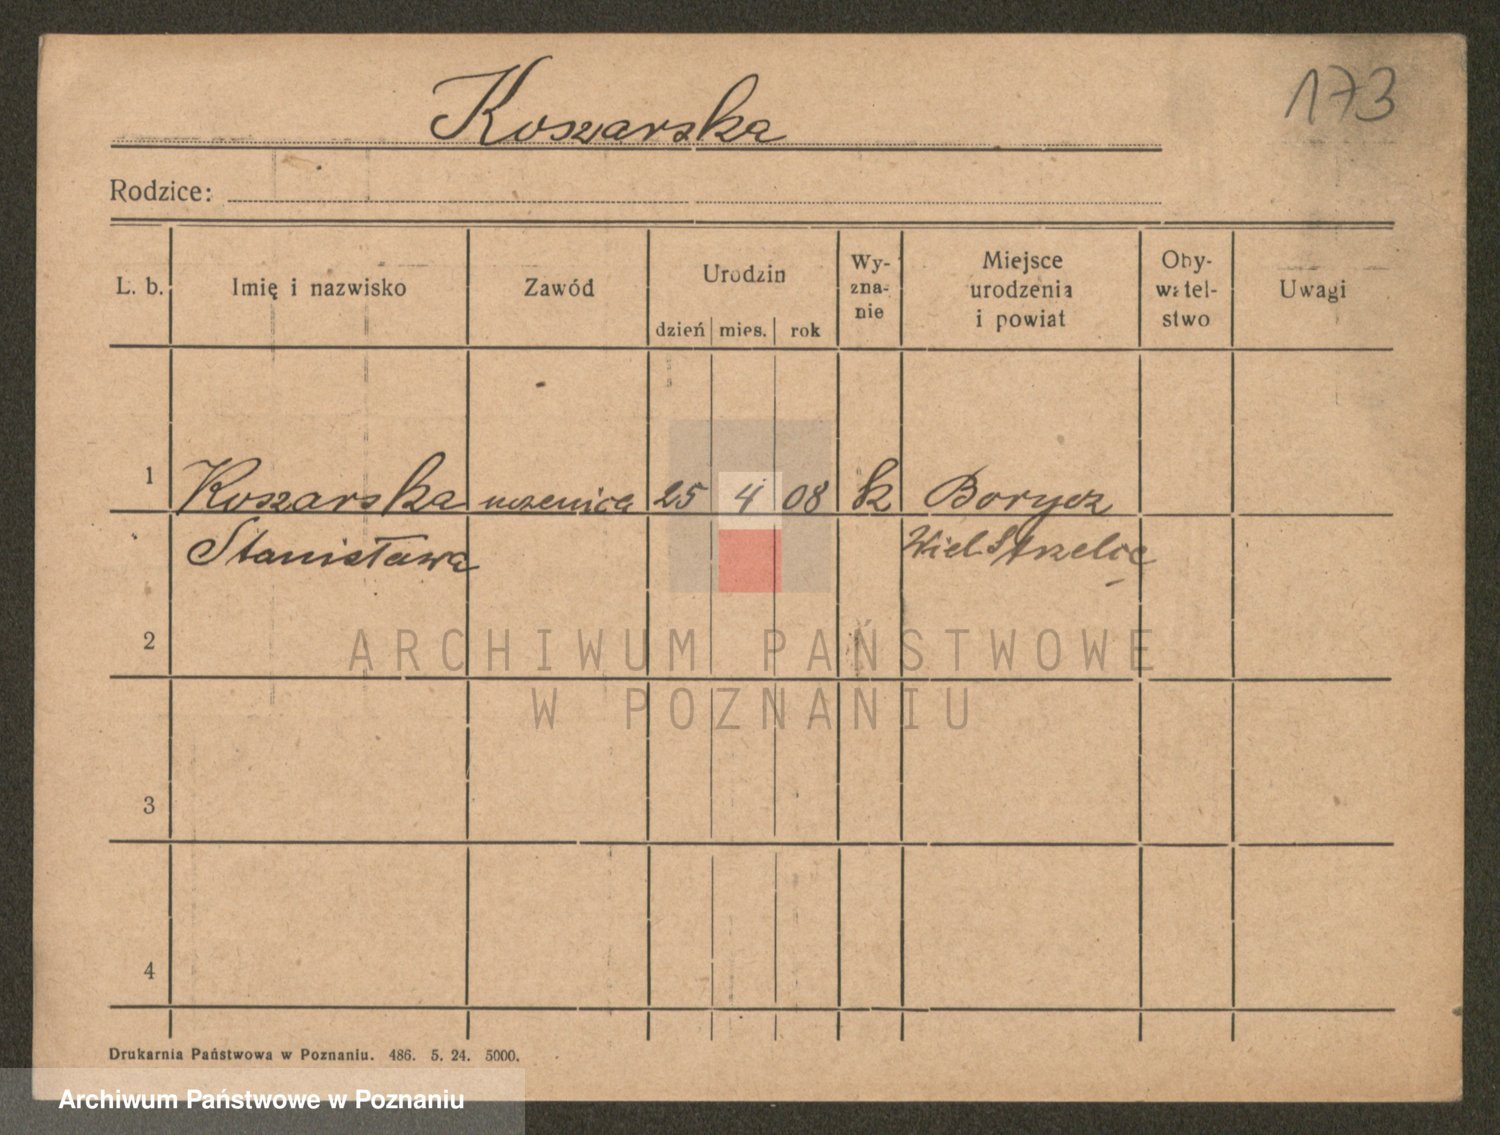 Koszarska
173
Rodzice:
L. b.
Imię i nazwisko
Zawód
Urodzin
dzień mies. rok
Wy-
zna-
nie
Miejsce
urodzenia
i powiat
Oby-
watel-
stwo
Uwagi
1 Koszarska uczenica 25 4 08 k Borycz
Stanisława Wiel. Strzelce
2
3
4
ARCHIWUM PAŃSTWOWE
W POZNANIU
Drukarnia Państwowa w Poznaniu. 486. 5. 24. 5000.
Archiwum Państwowe w Poznaniu